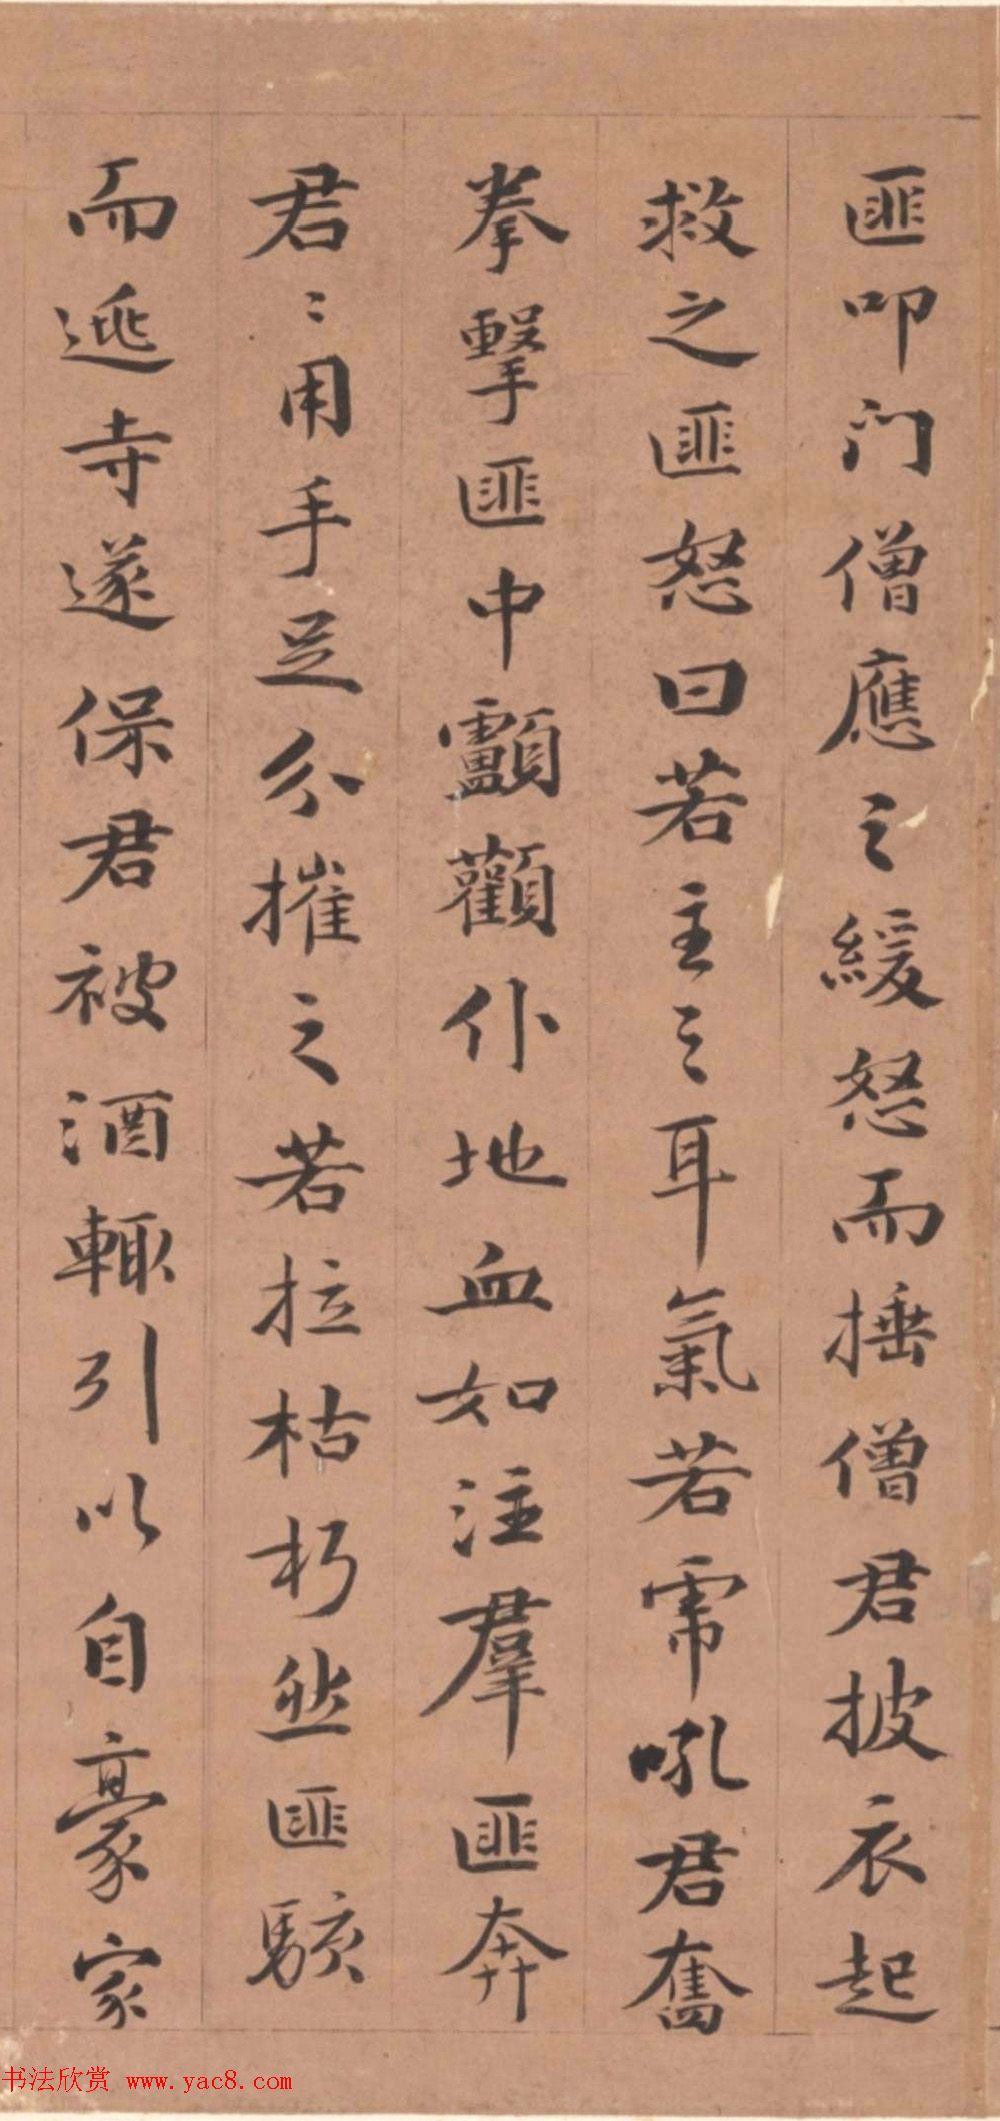 匪叩门僧應之緩怒而捶僧君披衣起
救之匪怒曰若主〻耳氣若虎吼君奮
拳擊匪中顱顴仆地血如注羣匪奔
君〻用手足分摧之若拉枯朽然匪駭
而逃寺遂保君被酒輒引以自豪家
书法欣赏 www.yac8.com